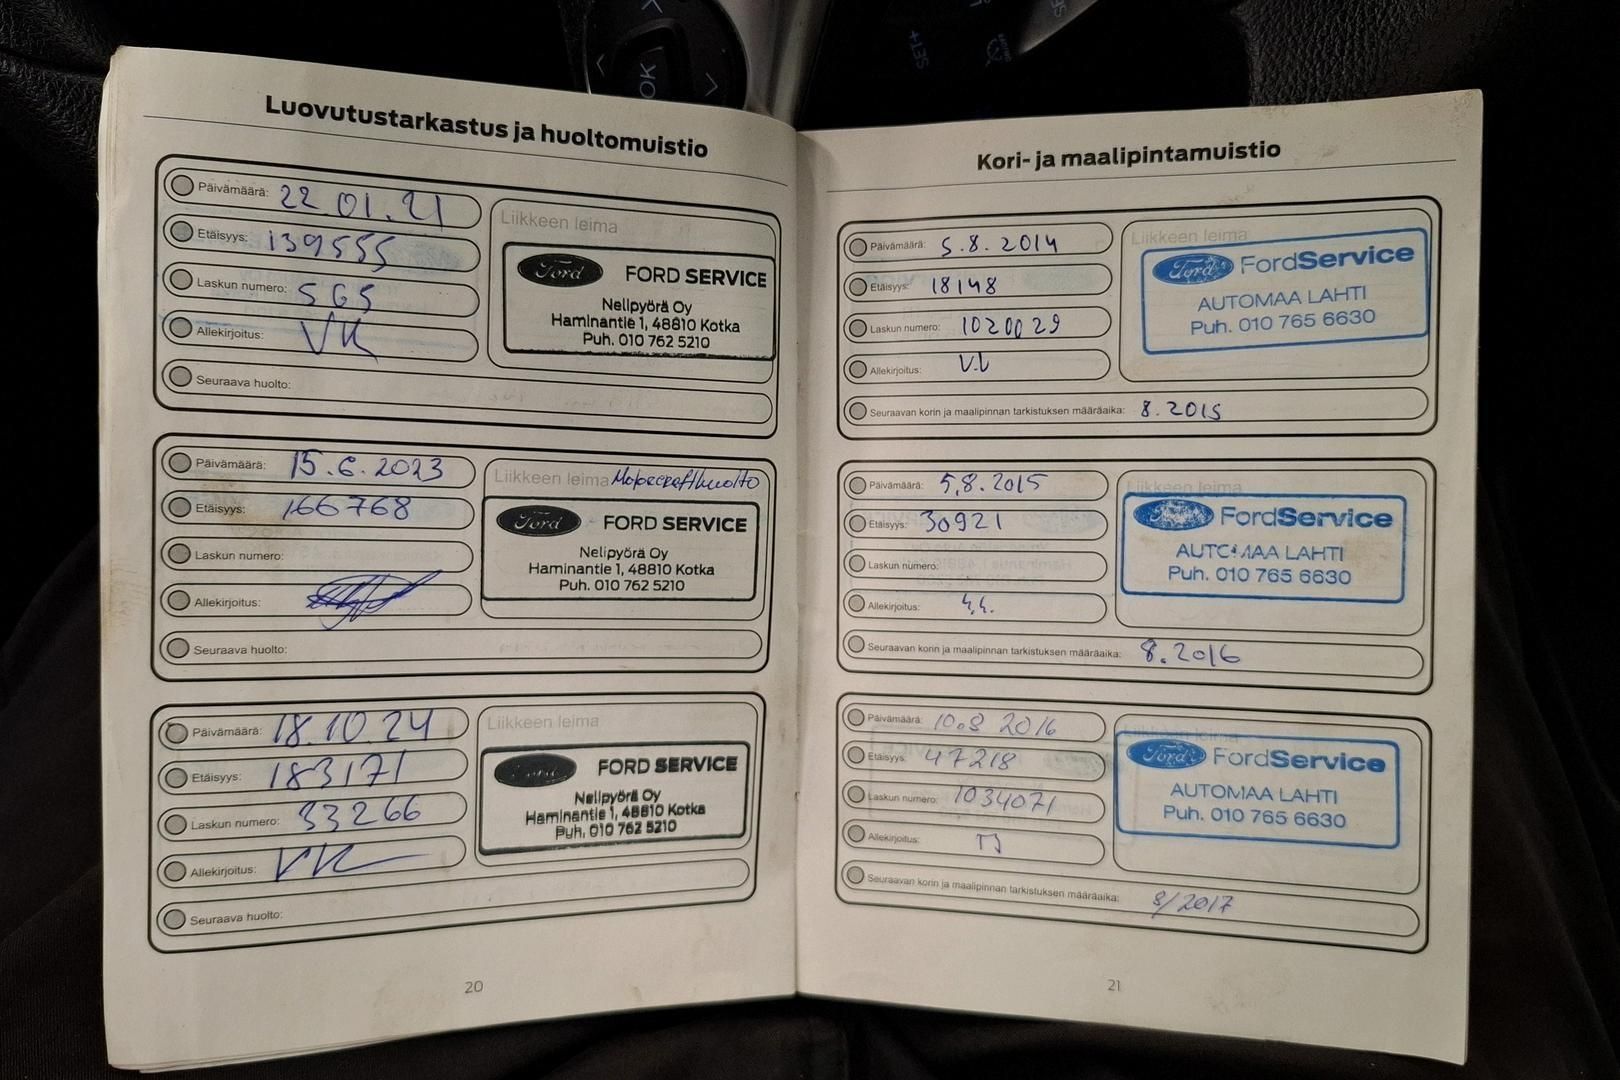 OK
SET+
Luovutustarkastus ja huoltomuistio
Päivämäärä: 22.01.21
Etäisyys: 139555
Laskun numero: 565
Allekirjoitus: VK
Seuraava huolto:
Liikkeen leima
Ford FORD SERVICE
Nelipyörä Oy
Haminantie 1, 48810 Kotka
Puh. 010 762 5210
Päivämäärä: 15.6.2023
Etäisyys: 166768
Laskun numero:
Allekirjoitus:
Seuraava huolto:
Liikkeen leima Motorcrafthuolto
Ford FORD SERVICE
Nelipyörä Oy
Haminantie 1, 48810 Kotka
Puh. 010 762 5210
Päivämäärä: 18.10.24
Etäisyys: 183171
Laskun numero: 33266
Allekirjoitus: VK
Seuraava huolto:
Liikkeen leima
Ford FORD SERVICE
Nelipyörä Oy
Haminantie 1, 48810 Kotka
Puh. 010 762 5210
20
Kori- ja maalipintamuistio
Päivämäärä: 5.8.2014
Etäisyys: 18148
Laskun numero: 1020029
Allekirjoitus: V.V
Seuraavan korin ja maalipinnan tarkistuksen määräaika: 8.2015
Liikkeen leima
Ford FordService
AUTOMAA LAHTI
Puh. 010 765 6630
Päivämäärä: 5.8.2015
Etäisyys: 30921
Laskun numero:
Allekirjoitus:
Seuraavan korin ja maalipinnan tarkistuksen määräaika: 8.2016
Liikkeen leima
Ford FordService
AUTOMAA LAHTI
Puh. 010 765 6630
Päivämäärä: 10.8 2016
Etäisyys: 47218
Laskun numero: 1034071
Allekirjoitus: TJ
Seuraavan korin ja maalipinnan tarkistuksen määräaika: 8/2017
Liikkeen leima
Ford FordService
AUTOMAA LAHTI
Puh. 010 765 6630
21